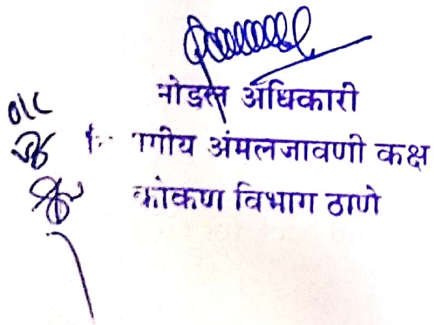 नोडल अधिकारी
O/C
गीय अंमलजावणी कक्ष
कोकण विभाग ठाणे